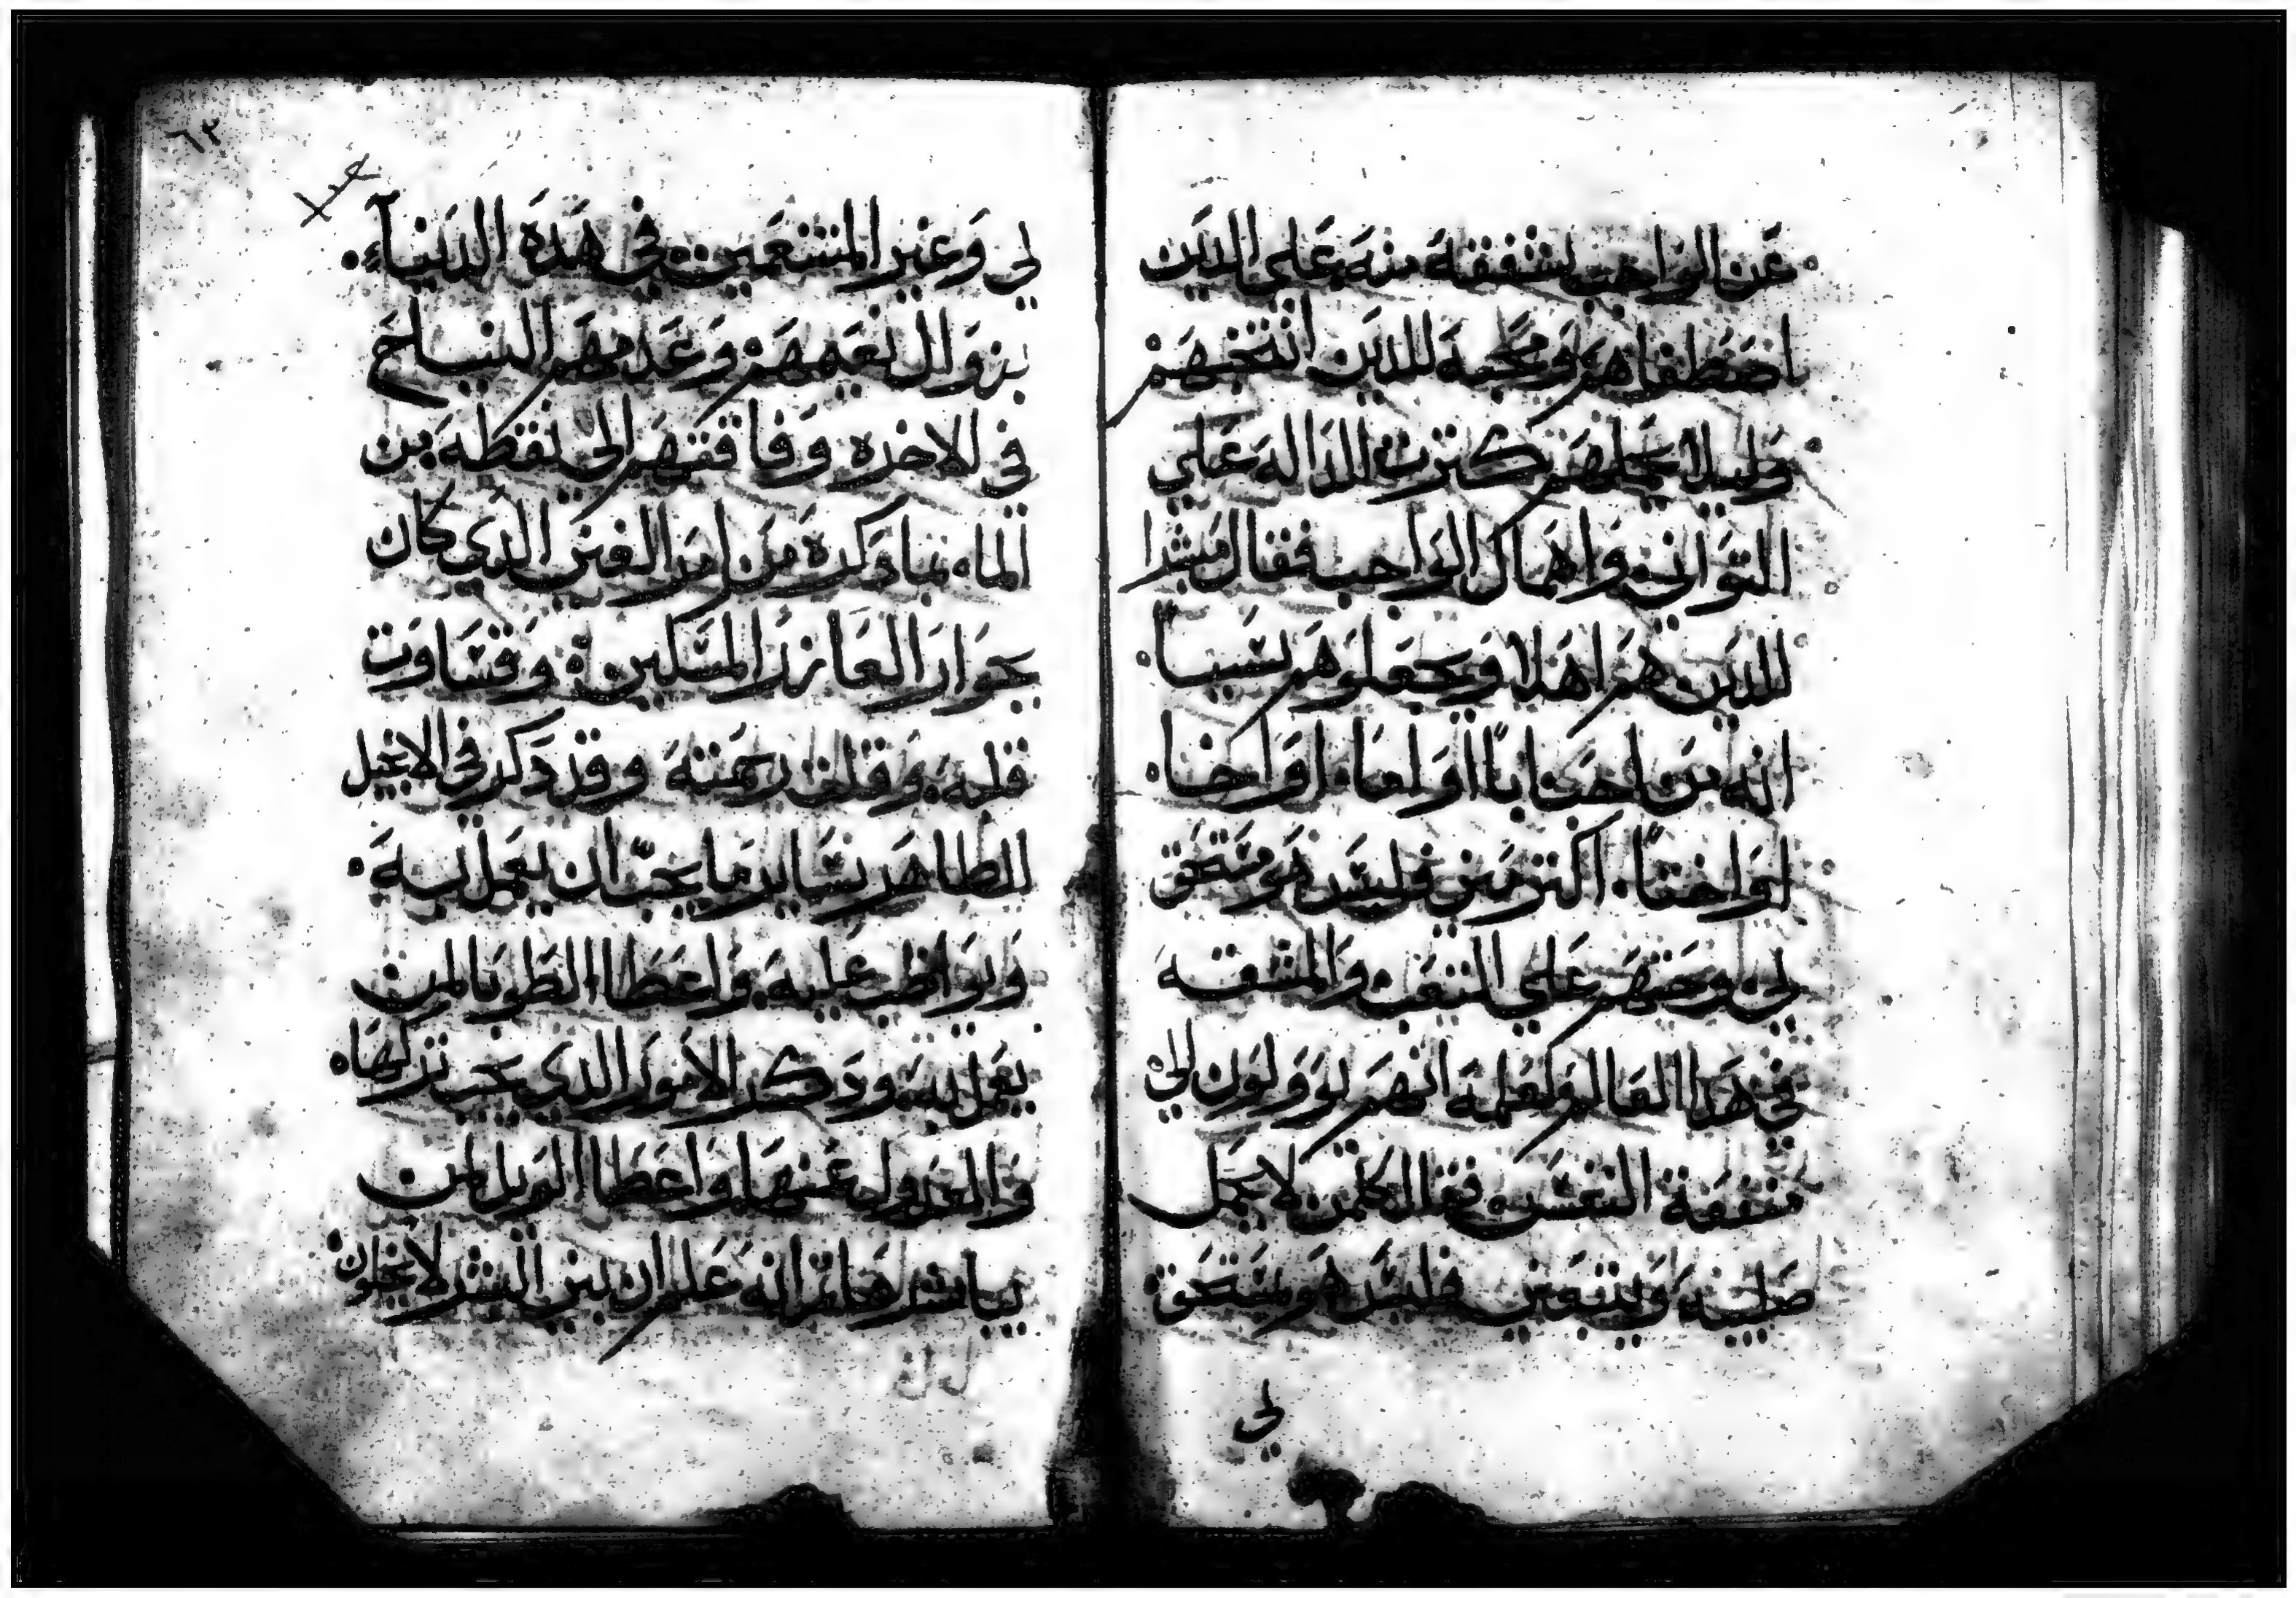 عن الواجب بشفقة منه على الدين
اصطفاهم ومحبة للدين انتخبهم
وليلا تحملهم كترت الدالة على
التواني واهمال الواجب فقال مبتدا
للدين هم اهلا ويجعلوهم نسيبا
انه من احب ابا او اما او اخا
او اختا اكتر مني فليس هو مستحق
لي وحتهم على التعب والمشقة
في هدا العالم ولعلمه انهم يوولون الى
منفعة النفس فقال كلمن لا يحمل
صليبه ويتبعني فليس هو مستحق
لي
٦٢
لي وعير المتنعمين في هده الدنيا
بزوال نعيمهم وعدمهم النياح
في الاخره وفاقتهم الى نقطه من
الما بما دكره من امر الغني الدي كان
بجوار العازر المسكين وقساوت
قلبه وقلت رحمته وقد دكر في الانجيل
الطاهر بساير ما يجب ان يعمل به
ويواظب عليه واعطا الطوبا لمن
يعمل به ودكر الامور الدي يجب تركها
والعدول عنها واعطا الويل لمن
يباشرها تم انه علم ان بني البشر لا يخلون